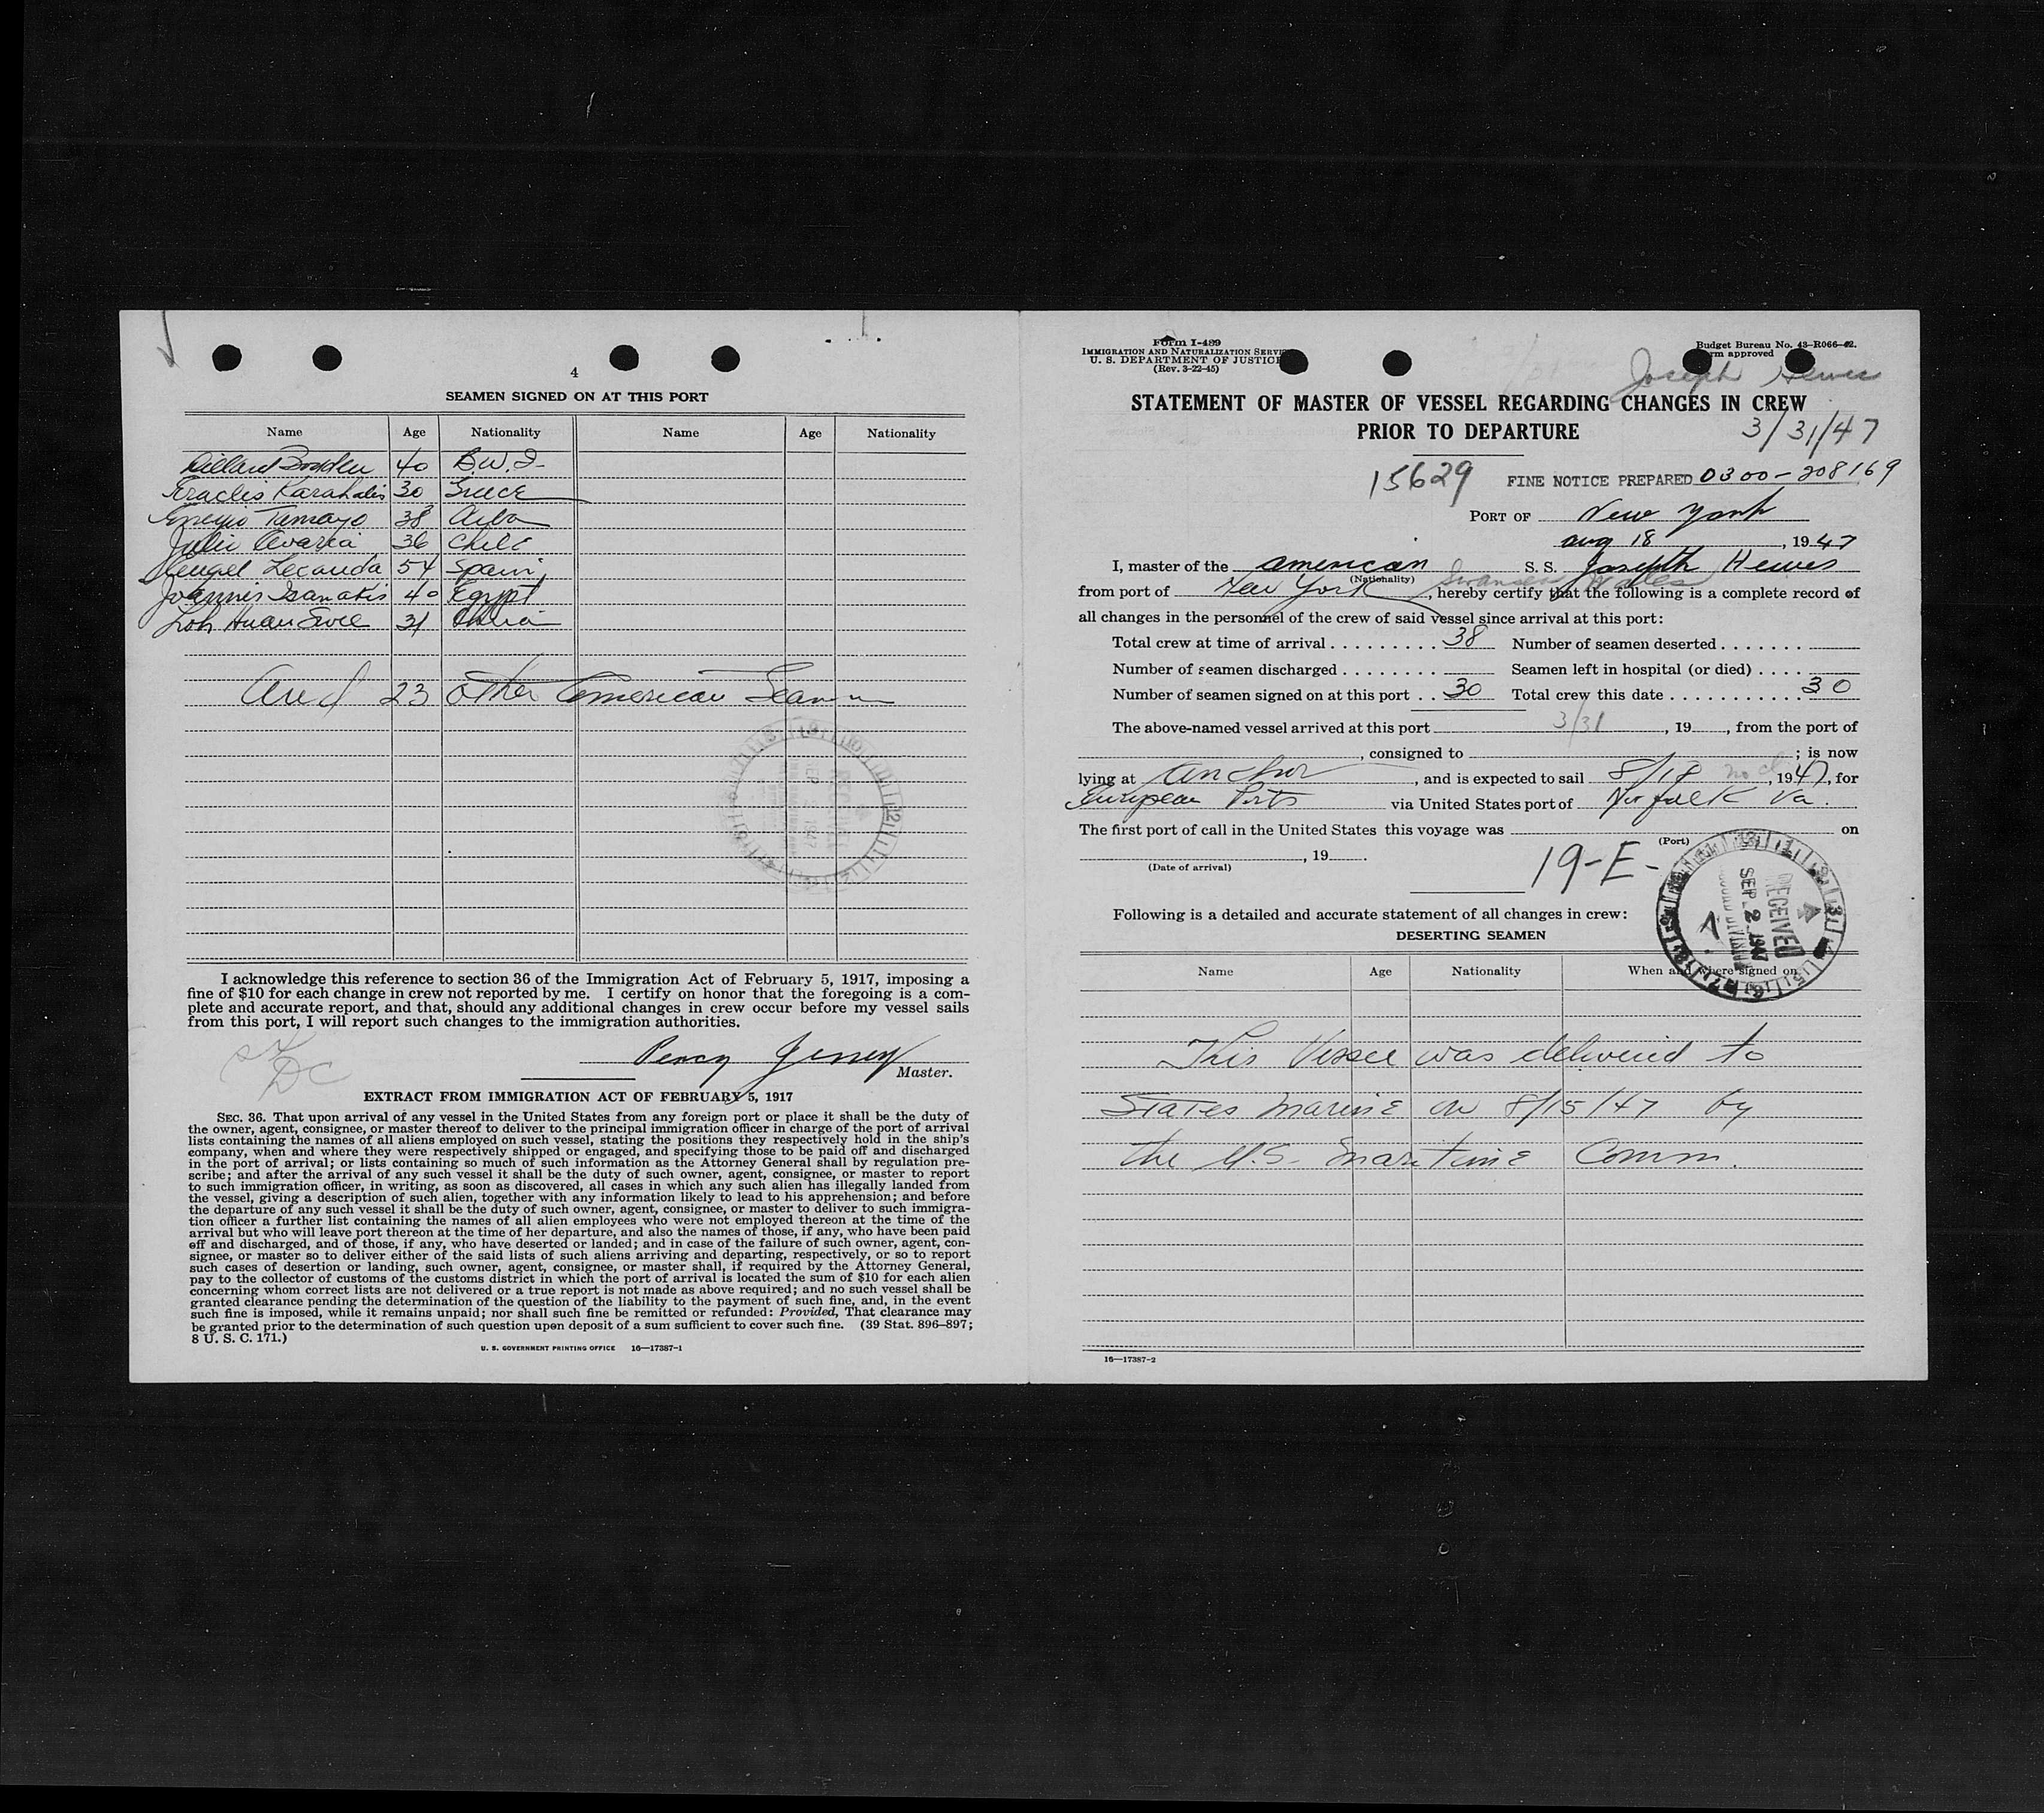 4
SEAMEN SIGNED ON AT THIS PORT
Name Age Nationality Name Age Nationality
40 B.W.I.
Karahalis 30 Greece
Tamayo 38
36 Chile
Lecanda 54 Spain
Joannis 40 Egypt
Loh Huan Swee 31 China
And 23 other American Seamen
I acknowledge this reference to section 36 of the Immigration Act of February 5, 1917, imposing a
fine of $10 for each change in crew not reported by me. I certify on honor that the foregoing is a com-
plete and accurate report, and that, should any additional changes in crew occur before my vessel sails
from this port, I will report such changes to the immigration authorities.
DC
Percy
Master.
EXTRACT FROM IMMIGRATION ACT OF FEBRUARY 5, 1917
SEC. 36. That upon arrival of any vessel in the United States from any foreign port or place it shall be the duty of
the owner, agent, consignee, or master thereof to deliver to the principal immigration officer in charge of the port of arrival
lists containing the names of all aliens employed on such vessel, stating the positions they respectively hold in the ship's
company, when and where they were respectively shipped or engaged, and specifying those to be paid off and discharged
in the port of arrival; or lists containing so much of such information as the Attorney General shall by regulation pre-
scribe; and after the arrival of any such vessel it shall be the duty of such owner, agent, consignee, or master to report
to such immigration officer, in writing, as soon as discovered, all cases in which any such alien has illegally landed from
the vessel, giving a description of such alien, together with any information likely to lead to his apprehension; and before
the departure of any such vessel it shall be the duty of such owner, agent, consignee, or master to deliver to such immigra-
tion officer a further list containing the names of all alien employees who were not employed thereon at the time of the
arrival but who will leave port thereon at the time of her departure, and also the names of those, if any, who have been paid
off and discharged, and of those, if any, who have deserted or landed; and in case of the failure of such owner, agent, con-
signee, or master so to deliver either of the said lists of such aliens arriving and departing, respectively, or so to report
such cases of desertion or landing, such owner, agent, consignee, or master shall, if required by the Attorney General,
pay to the collector of customs of the customs district in which the port of arrival is located the sum of $10 for each alien
concerning whom correct lists are not delivered or a true report is not made as above required; and no such vessel shall be
granted clearance pending the determination of the question of the liability to the payment of such fine, and, in the event
such fine is imposed, while it remains unpaid; nor shall such fine be remitted or refunded: Provided, That clearance may
be granted prior to the determination of such question upon deposit of a sum sufficient to cover such fine. (39 Stat. 896–897;
8 U. S. C. 171.)
U. S. GOVERNMENT PRINTING OFFICE 16—17387-1
Form I-489
IMMIGRATION AND NATURALIZATION SERVICE
U. S. DEPARTMENT OF JUSTICE
(Rev. 3-22-45)
Budget Bureau No. 43-R066-42.
Form approved
Joseph Hewes
STATEMENT OF MASTER OF VESSEL REGARDING CHANGES IN CREW
PRIOR TO DEPARTURE
3/31/47
15629 FINE NOTICE PREPARED 0300-208169
PORT OF New York
Aug 18, 1947
I, master of the American S. S. Joseph Hewes
(Nationality)
Swansea Wales
from port of New York, hereby certify that the following is a complete record of
all changes in the personnel of the crew of said vessel since arrival at this port:
Total crew at time of arrival 38 Number of seamen deserted
Number of seamen discharged Seamen left in hospital (or died)
Number of seamen signed on at this port 30 Total crew this date 30
The above-named vessel arrived at this port 3/31, 19, from the port of
, consigned to ; is now
lying at Anchor, and is expected to sail 8/18, 1947, for
European Ports via United States port of Norfolk Va.
The first port of call in the United States this voyage was on
(Port)
, 19
(Date of arrival)
19-E-
RECEIVED
SEP 2 1947
Following is a detailed and accurate statement of all changes in crew:
DESERTING SEAMEN
Name Age Nationality When and where signed on
This Vessel was delivered to
States Marine on 8/15/47 by
the U.S. Maritime Comm.
16—17387-2